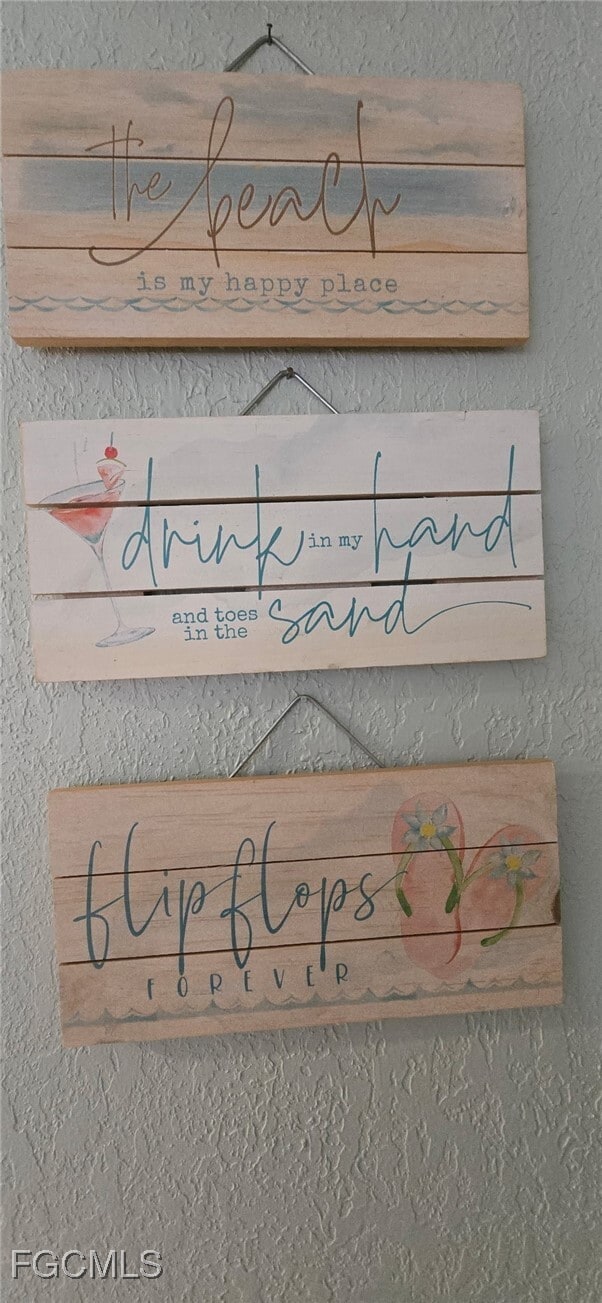 the beach
is my happy place
drink in my hand
and toes
in the sand
flip flops
FOREVER
FGCMLS